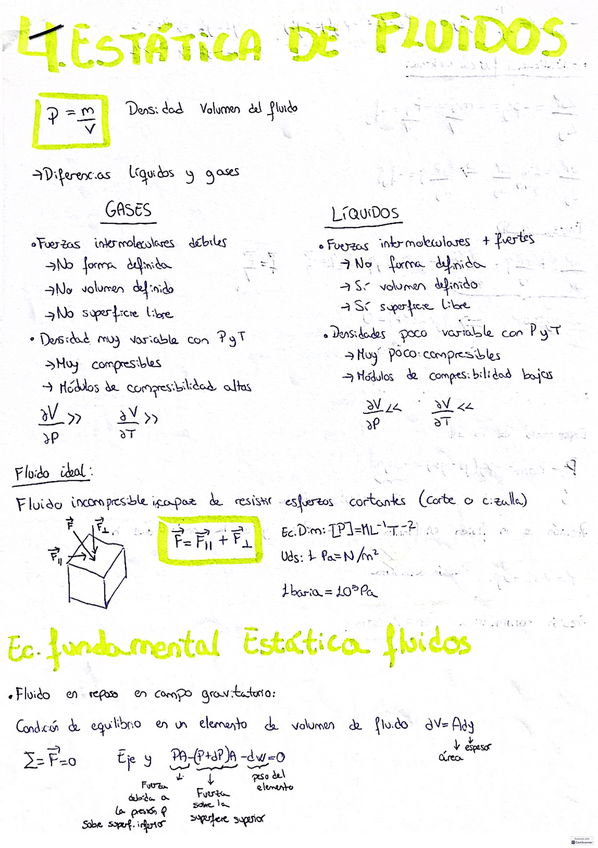 4. ESTÁTICA DE FLUIDOS
ρ = m/V Densidad Volumen del fluido
→Diferencias líquidos y gases
GASES
• Fuerzas intermoleculares débiles
→No forma definida
→No volumen definido
→No superficie libre
• Densidad muy variable con P y T
→Muy compresibles
→ Módulos de compresibilidad altos
∂V/∂P >> ∂V/∂T >>
LÍQUIDOS
• Fuerzas intermoleculares + fuertes
→ No forma definida
→ Sí volumen definido
→ Sí superficie libre
• Densidades poco variable con P y T
→ Muy poco compresibles
→ Módulos de compresibilidad bajos
∂V/∂P << ∂V/∂T <<
Fluido ideal:
Fluido incompresible incapaz de resistir esfuerzos cortantes (corte o cizalla)
F⃗ F⃗⊥
F⃗||
F⃗ = F⃗|| + F⃗⊥
Ec. Dim: [P]=ML⁻¹T⁻²
Uds: 1 Pa=N/m²
1 baria = 10⁵Pa
Ec. fundamental Estática fluidos
• Fluido en reposo en campo gravitatorio:
Condición de equilibrio en un elemento de volumen de fluido dV= Ady
área espesor
Σ=F⃗=0 Eje y PA-(P+dP)A-dw=0
Fuerza debida a la presión P sobre superf. inferior
Fuerza sobre la superficie superior
peso del elemento
CamScanner